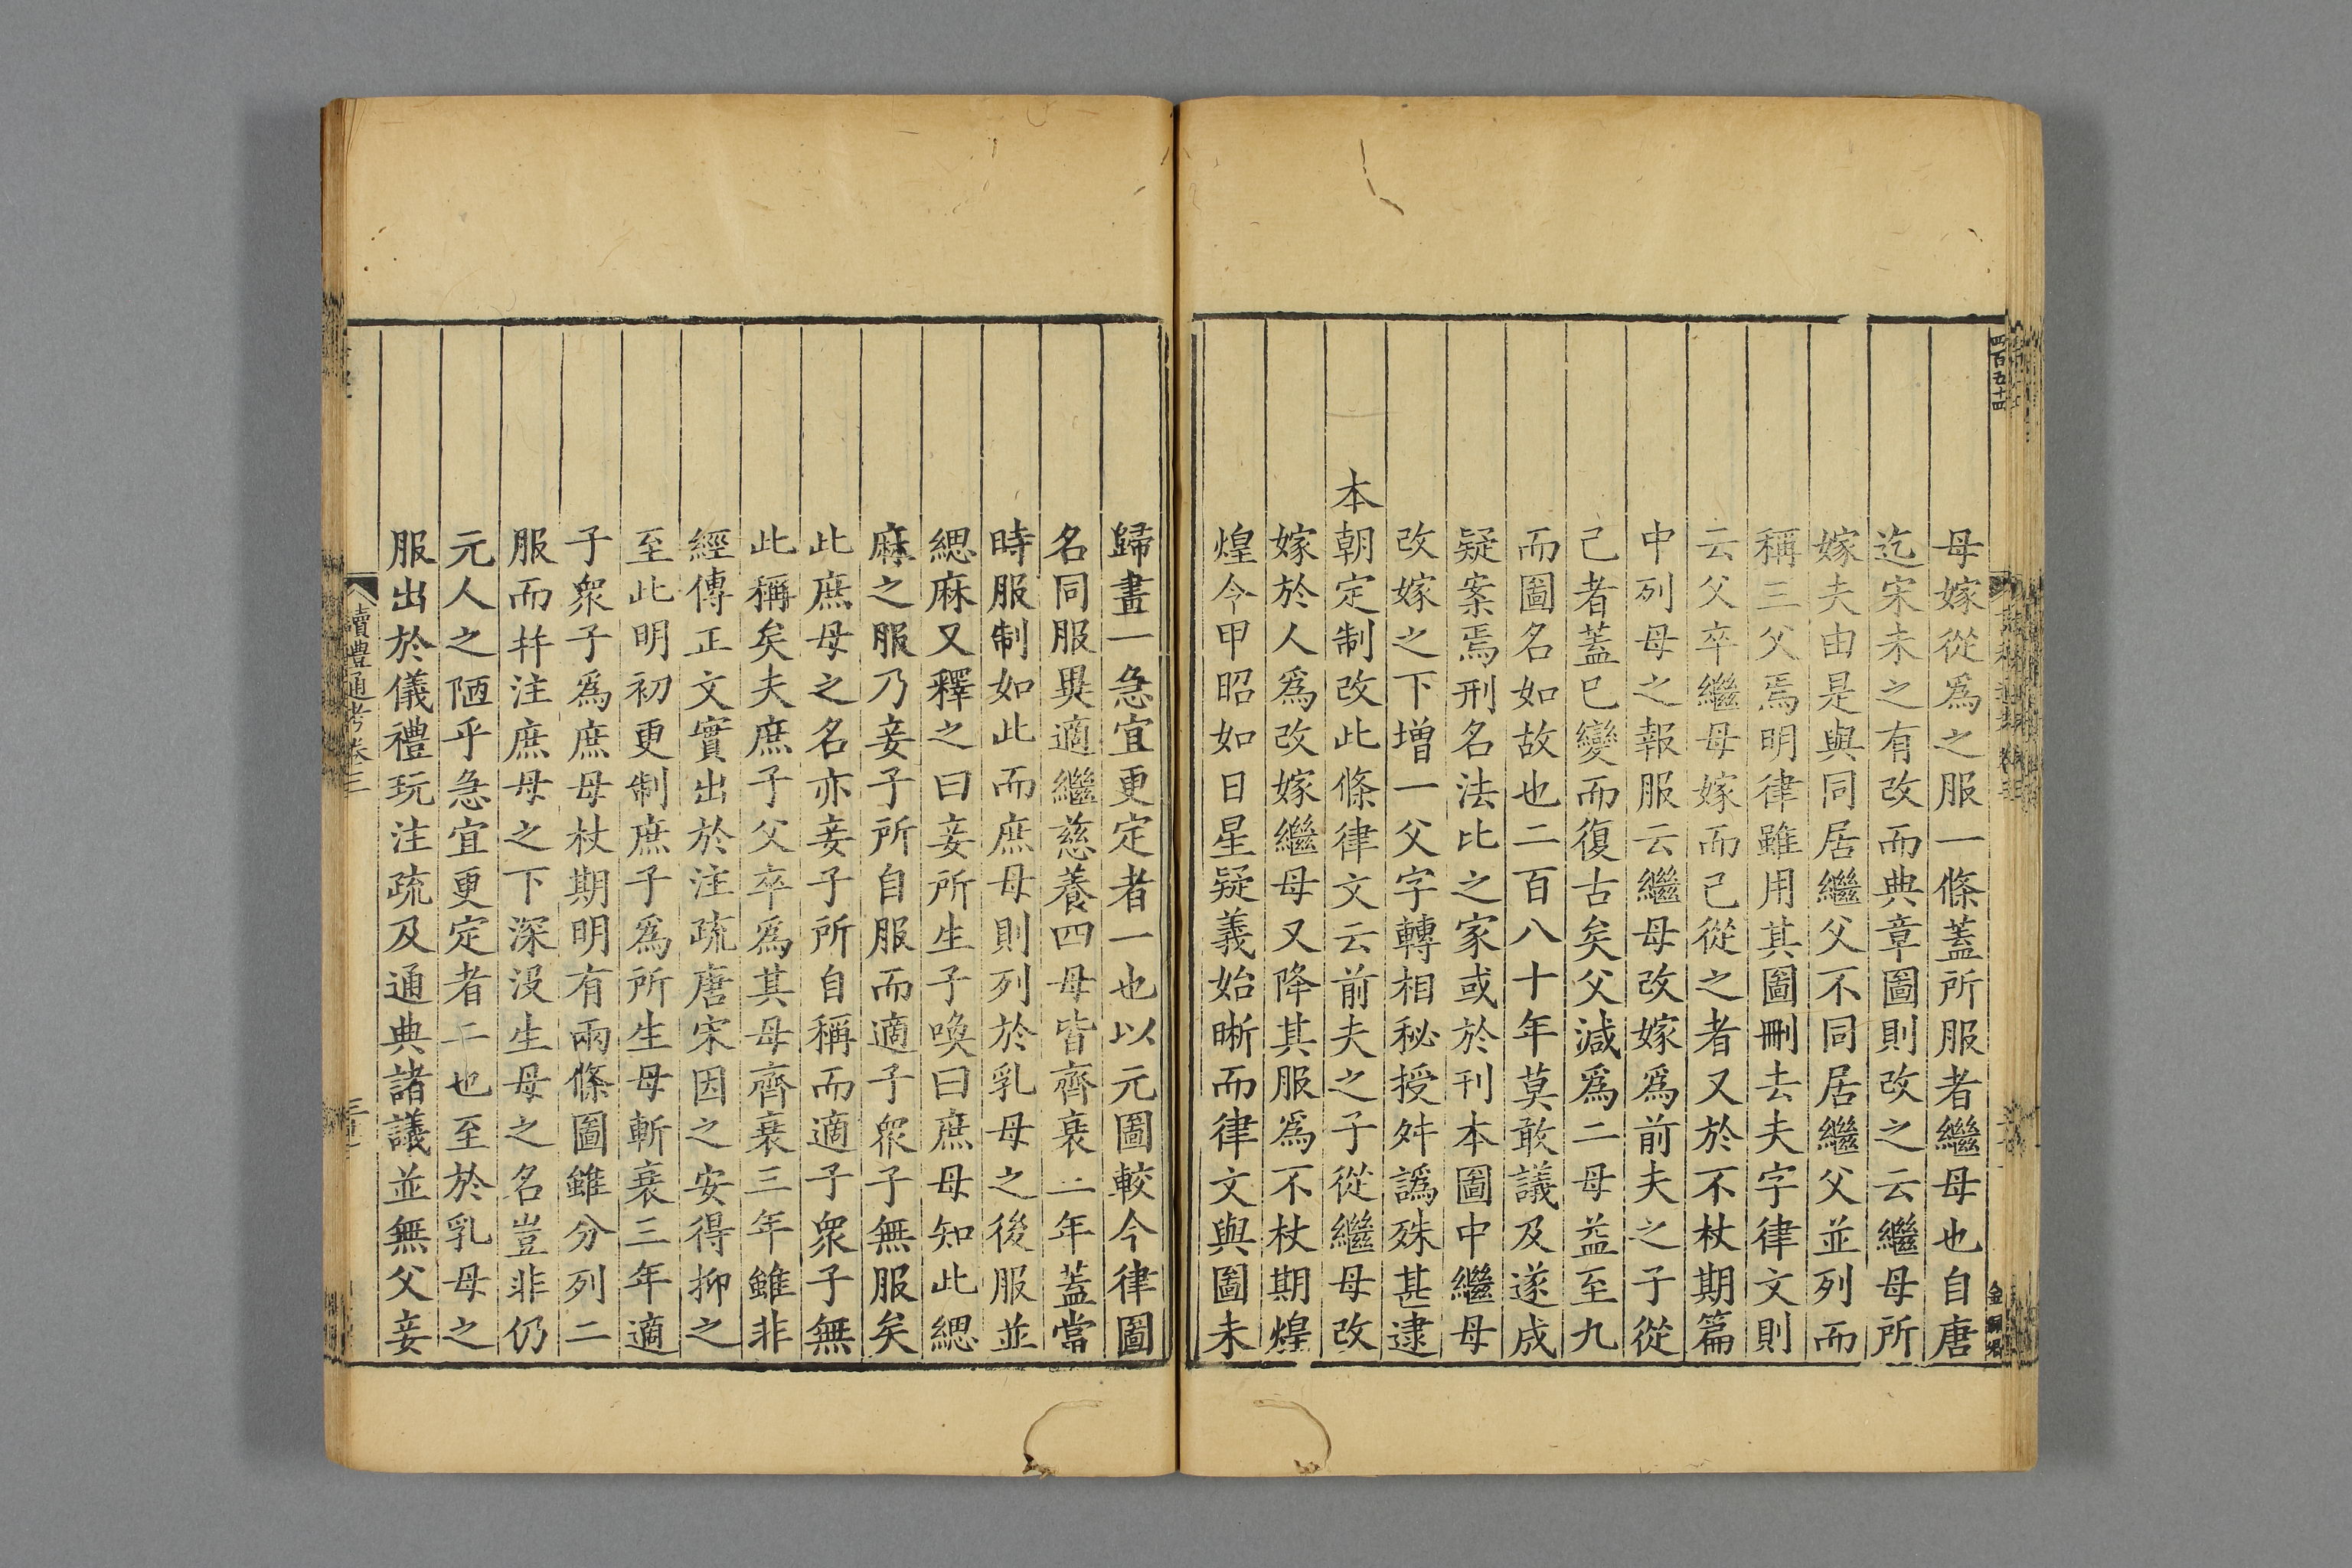 四百五十四
母嫁從爲之服一條蓋所服者繼母也自唐
迄宋未之有改而典章圖則改之云繼母所
嫁夫由是與同居繼父不同居繼父並列而
稱三父焉明律雖用其圖刪去夫字律文則
云父卒繼母嫁而己從之者又於不杖期篇
中列母之報服云繼母改嫁爲前夫之子從
己者蓋已變而復古矣父減爲二母益至九
而圖名如故也二百八十年莫敢議及遂成
疑案焉刑名法比之家或於刊本圖中繼母
改嫁之下增一父字轉相秘授舛譌殊甚逮
本朝定制改此條律文云前夫之子從繼母改
嫁於人爲改嫁繼母又降其服爲不杖期煌
煌今甲昭如日星疑義始晰而律文與圖未
歸畫一急宜更定者一也以元圖較今律圖
名同服異適繼慈養四母皆齊衰三年蓋當
時服制如此而庶母則列於乳母之後服並
緦麻又釋之曰妾所生子喚曰庶母知此緦
麻之服乃妾子所自服而適子衆子無服矣
此庶母之名亦妾子所自稱而適子衆子無
此稱矣夫庶子父卒爲其母齊衰三年雖非
經傳正文實出於注疏唐宋因之安得抑之
至此明初更制庶子爲所生母斬衰三年適
子衆子爲庶母杖期明有兩條圖雖分列二
服而幷注庶母之下深沒生母之名豈非仍
元人之陋乎急宜更定者二也至於乳母之
服出於儀禮玩注疏及通典諸議並無父妾
讀禮通考卷三